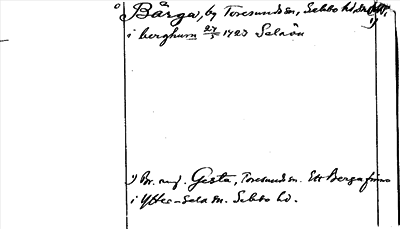 Bårga, by Toresunds sn, Selebo hd,
i berghum 27/5 1723 Selaön
1) Br. naf. Gesta, Toresunds sn. Ett Berga finns
i Ytter-Sela sn. Selebo hd.